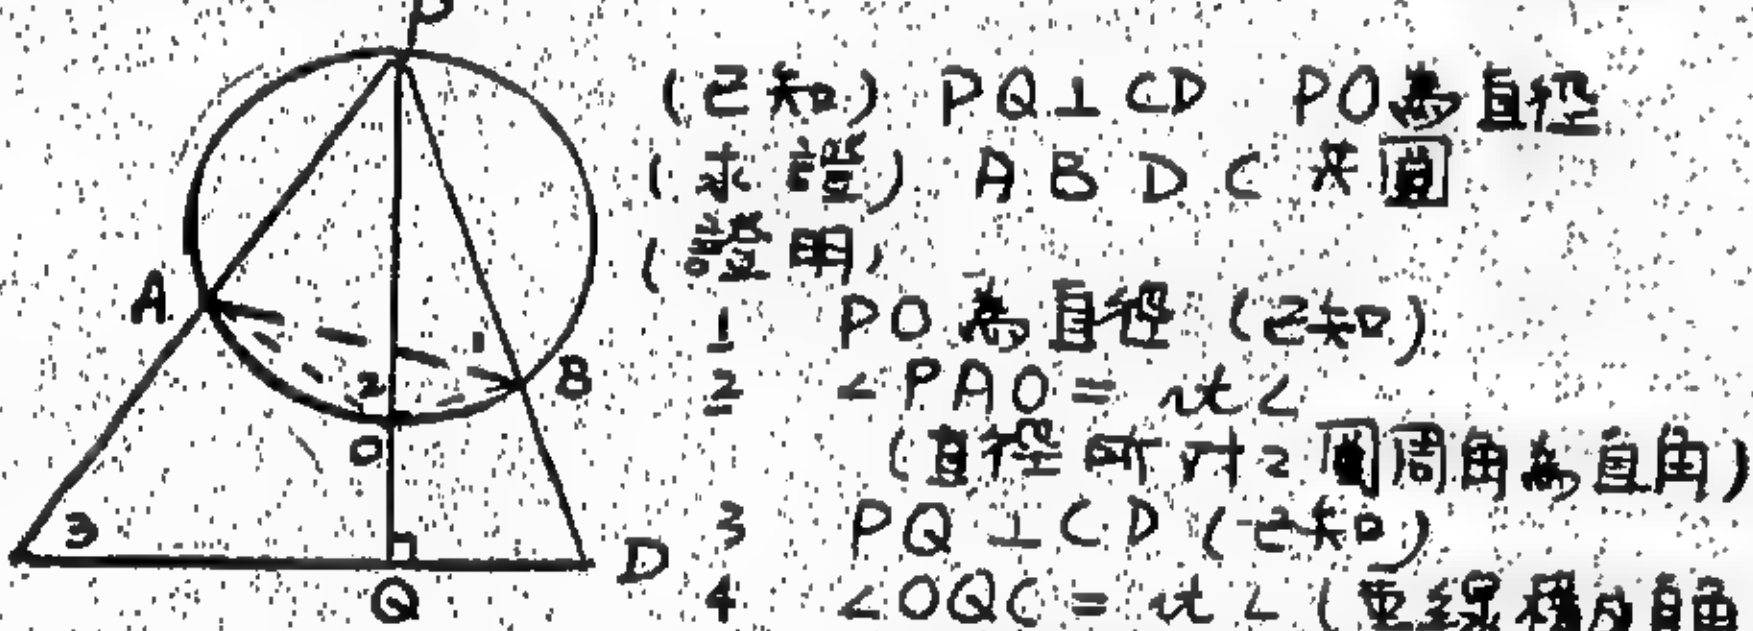 P
A
B
1
2
O
3
Q
D
(已知) PQ⊥CD PO為直徑
(求證) A B D C 共圓
(證明)
1 PO為直徑 (已知)
2 ∠PAO = rt∠
(直徑所对之圓周角為直角)
3 PQ⊥CD (已知)
4 ∠OQC = rt∠ (垂線構成直角